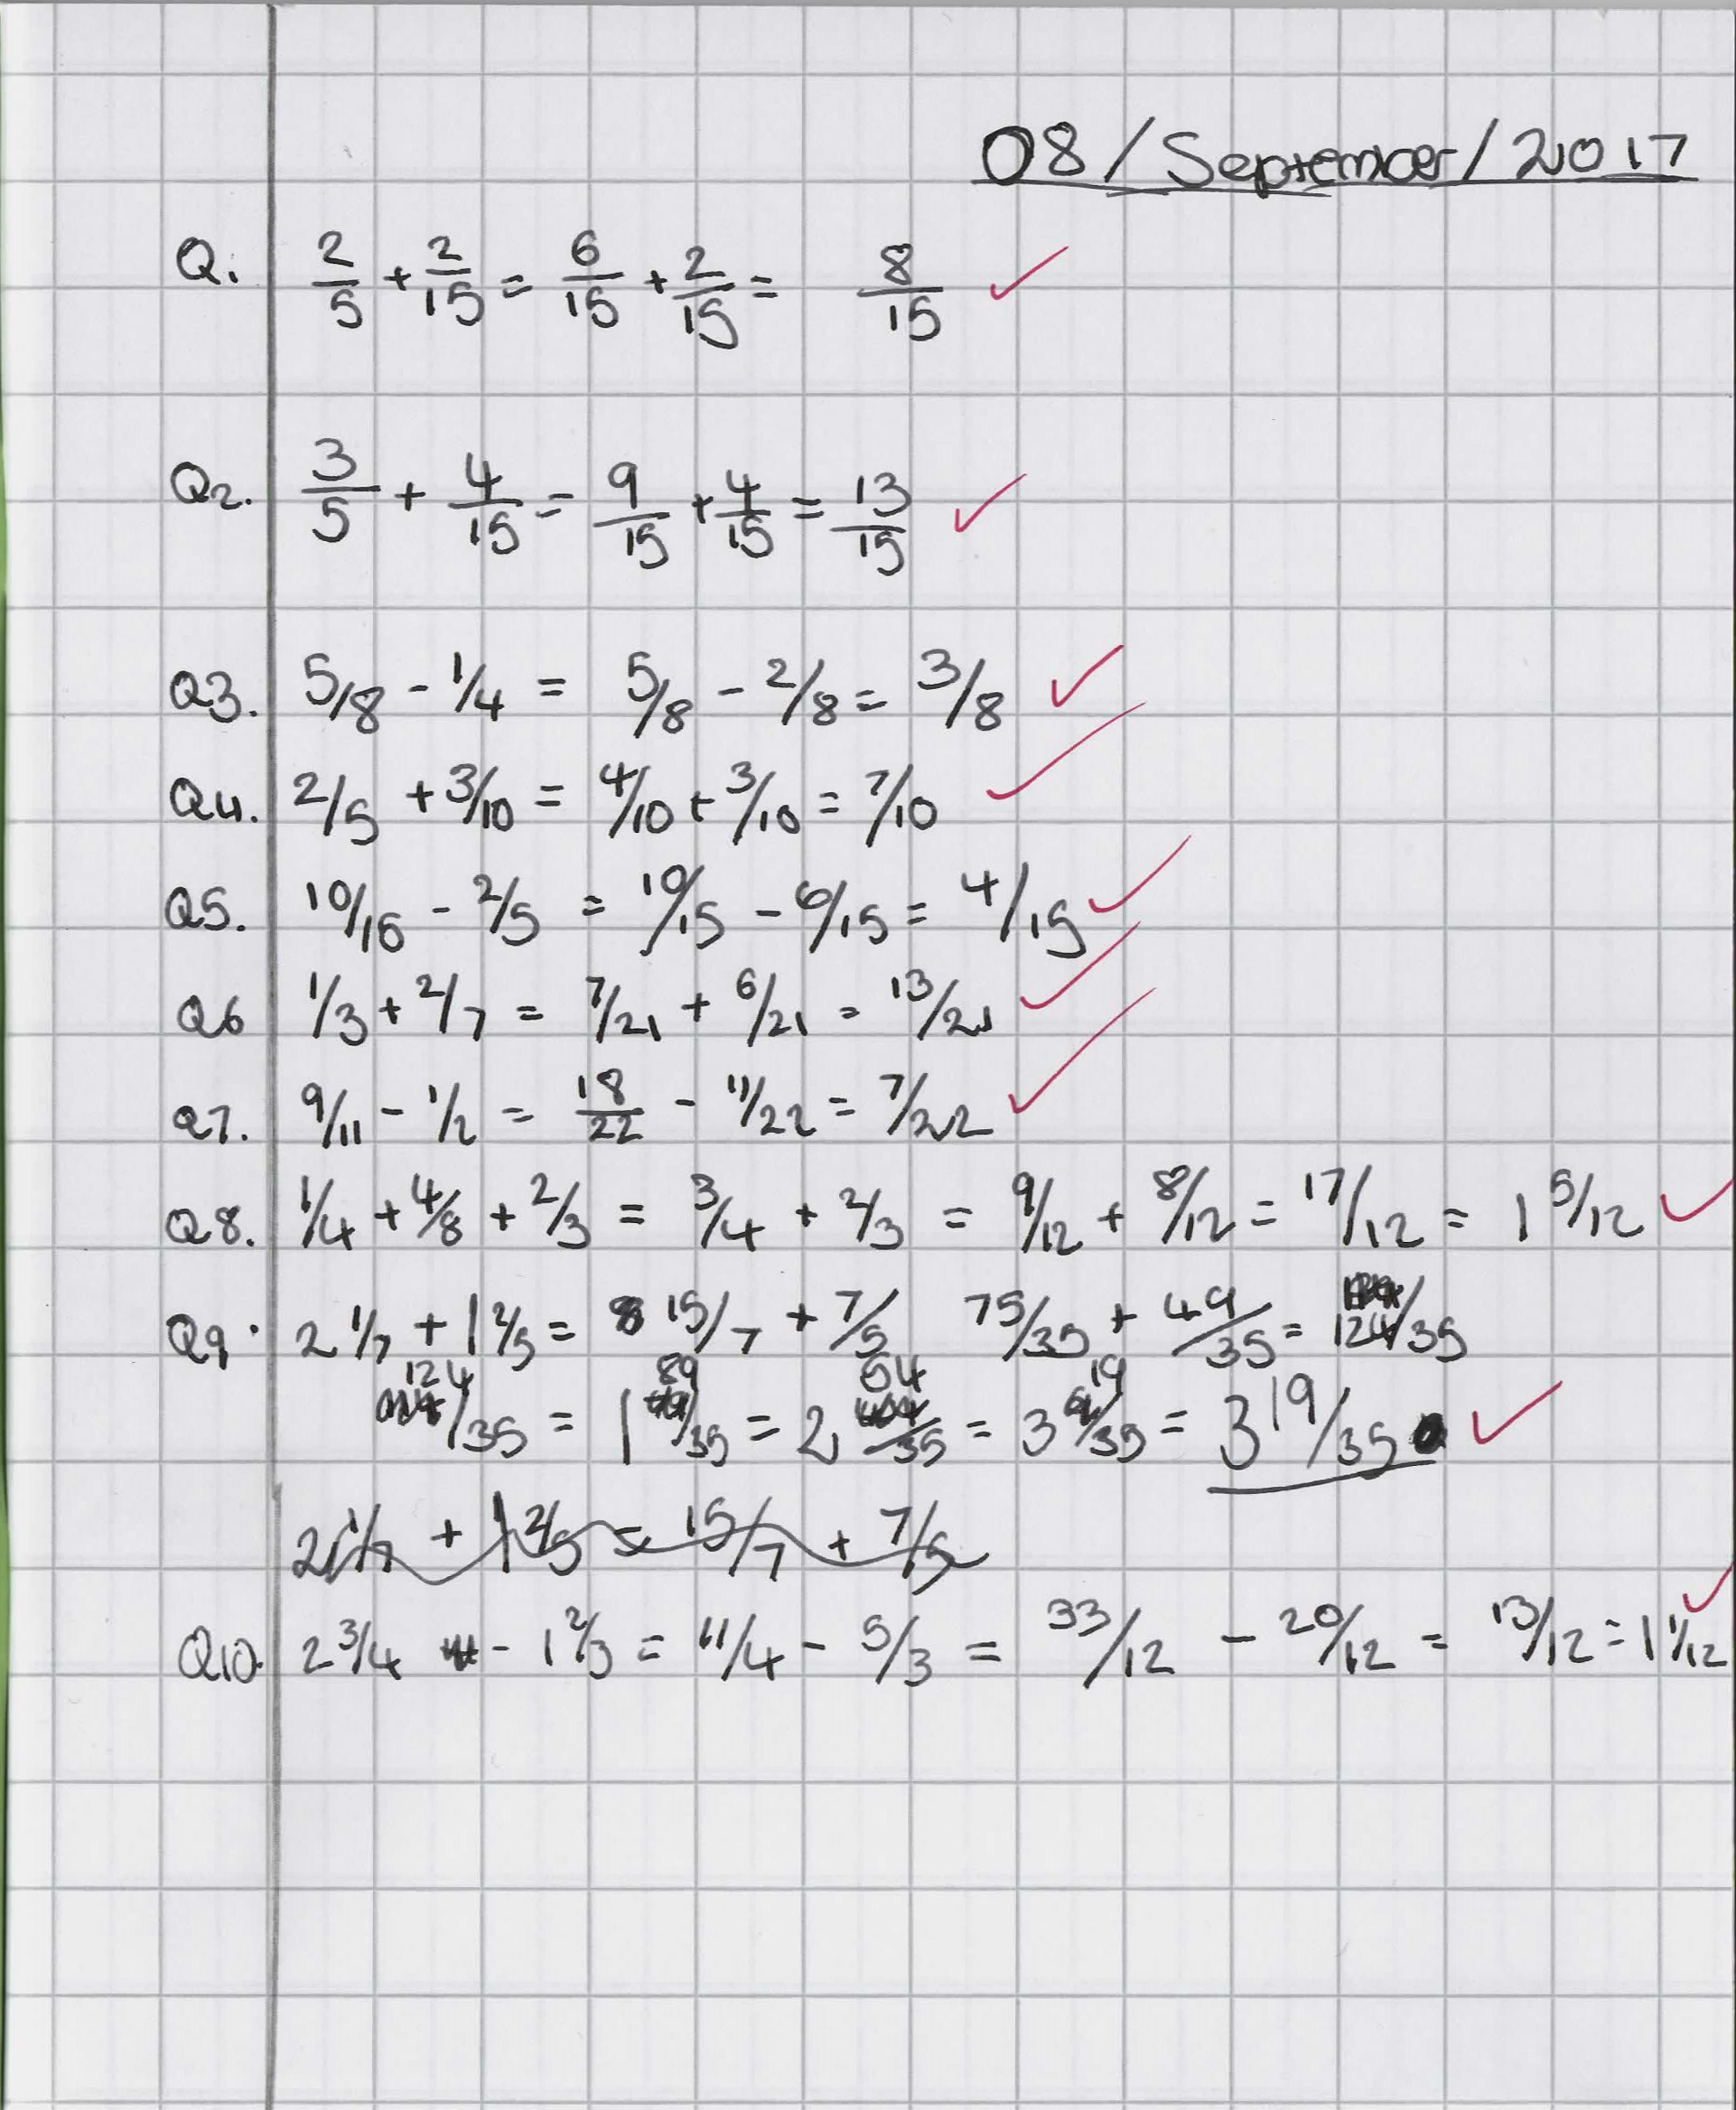 08/September/2017
Q. 2/5 + 2/15 = 6/15 + 2/15 = 8/15 ✓
Q2. 3/5 + 4/15 = 9/15 + 4/15 = 13/15 ✓
Q3. 5/8 - 1/4 = 5/8 - 2/8 = 3/8 ✓
Q4. 2/5 + 3/10 = 4/10 + 3/10 = 7/10 ✓
Q5. 10/15 - 2/5 = 10/15 - 6/15 = 4/15 ✓
Q6 1/3 + 2/7 = 7/21 + 6/21 = 13/21 ✓
Q7. 9/11 - 1/2 = 18/22 - 11/22 = 7/22 ✓
Q8. 1/4 + 4/8 + 2/3 = 3/4 + 2/3 = 9/12 + 8/12 = 17/12 = 1 5/12 ✓
Q9. 2 1/7 + 1 2/5 = 15/7 + 7/5 75/35 + 49/35 = 124/35
124/35 = 1 89/35 = 2 54/35 = 3 19/35 = 3 19/35 ✓
2 1/7 + 1 2/5 = 15/7 + 7/5
Q10. 2 3/4 - 1 2/3 = 11/4 - 5/3 = 33/12 - 20/12 = 13/12 = 1 1/12 ✓